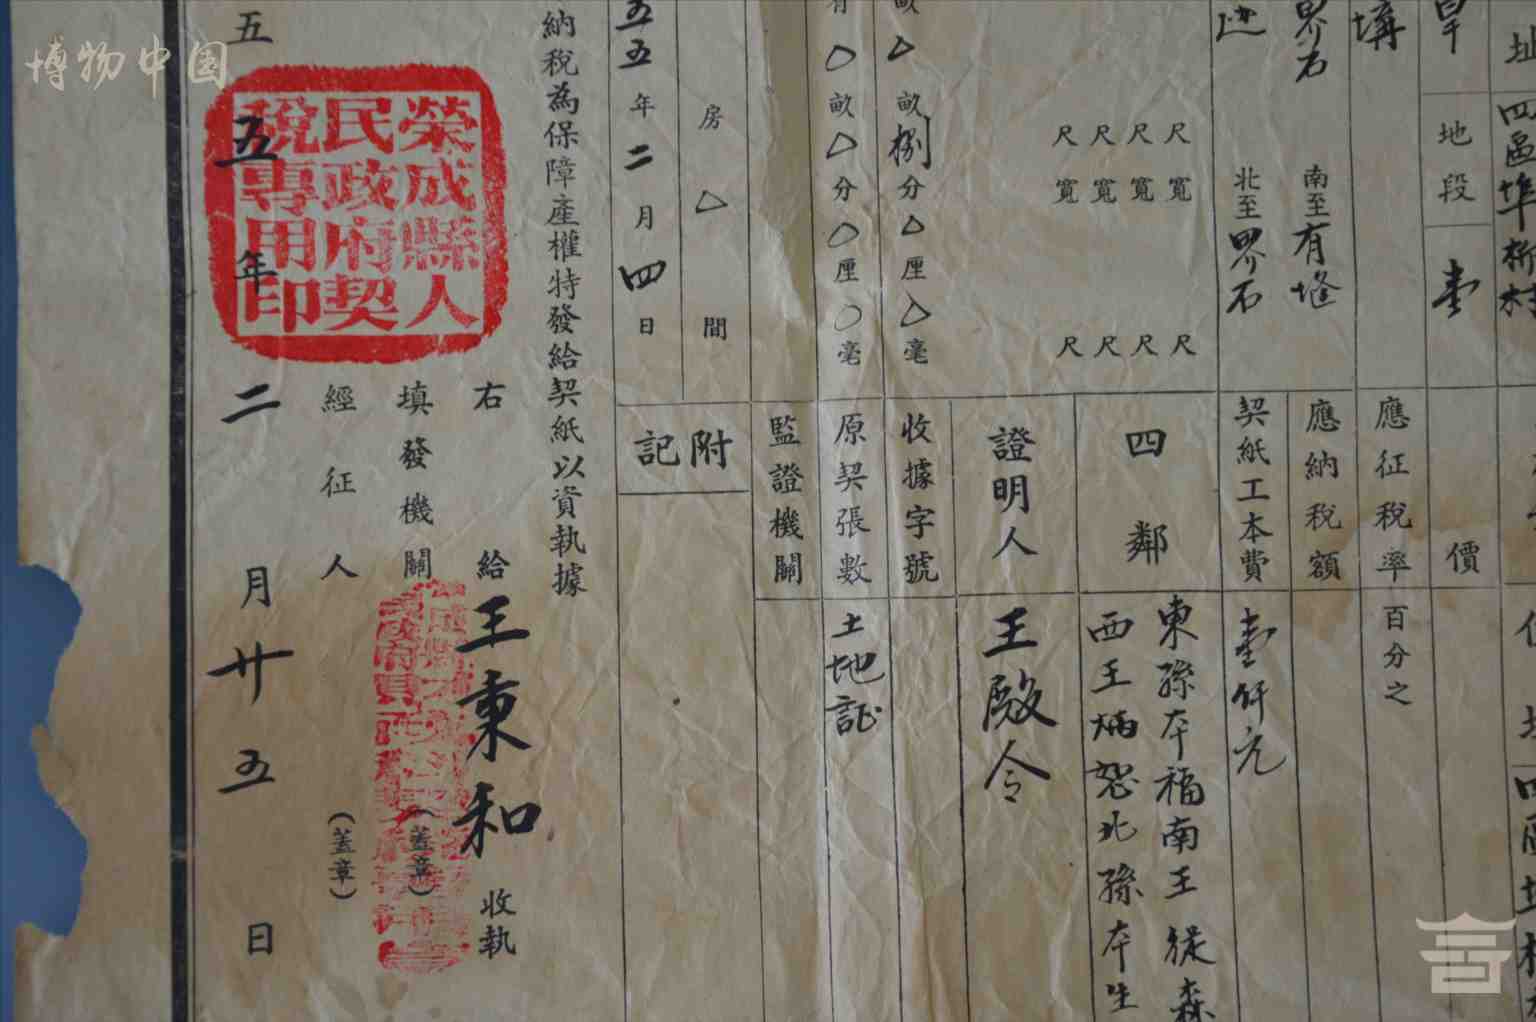 博物中国
址
四區埠柳村
旱
地段
壹
價
溝
應征稅率
百分之
界石
南至有墱
應納稅額
北至界石
契紙工本費
壹仟元
尺寬
尺
尺寬
尺
尺寬
尺
尺寬
尺
四鄰
東孫本福南王從森
西王炳恕北孫本生
證明人
王殿令
畝捌分△厘△毫
收據字號
畝△分○厘○毫
原契張數
土地証
監證機關
房△間
五五年二月四日
附記
納稅為保障產權特發給契紙以資執據
右給王東和收執
填發機關
(蓋章)
經征人
(蓋章)
五五年二月廿五日
榮成縣人
民政府契
稅專用印